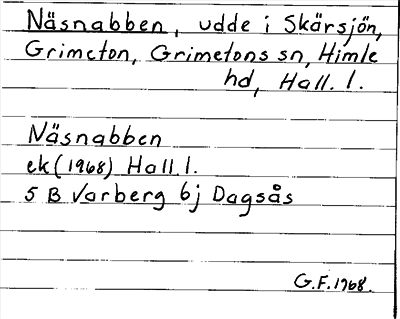 Näsnabben, udde i Skärsjön,
Grimeton, Grimetons sn, Himle
hd, Hall. l.
Näsnabben
ek (1968) Hall l.
5 B Varberg 6j Dagsås
G.F. 1968.